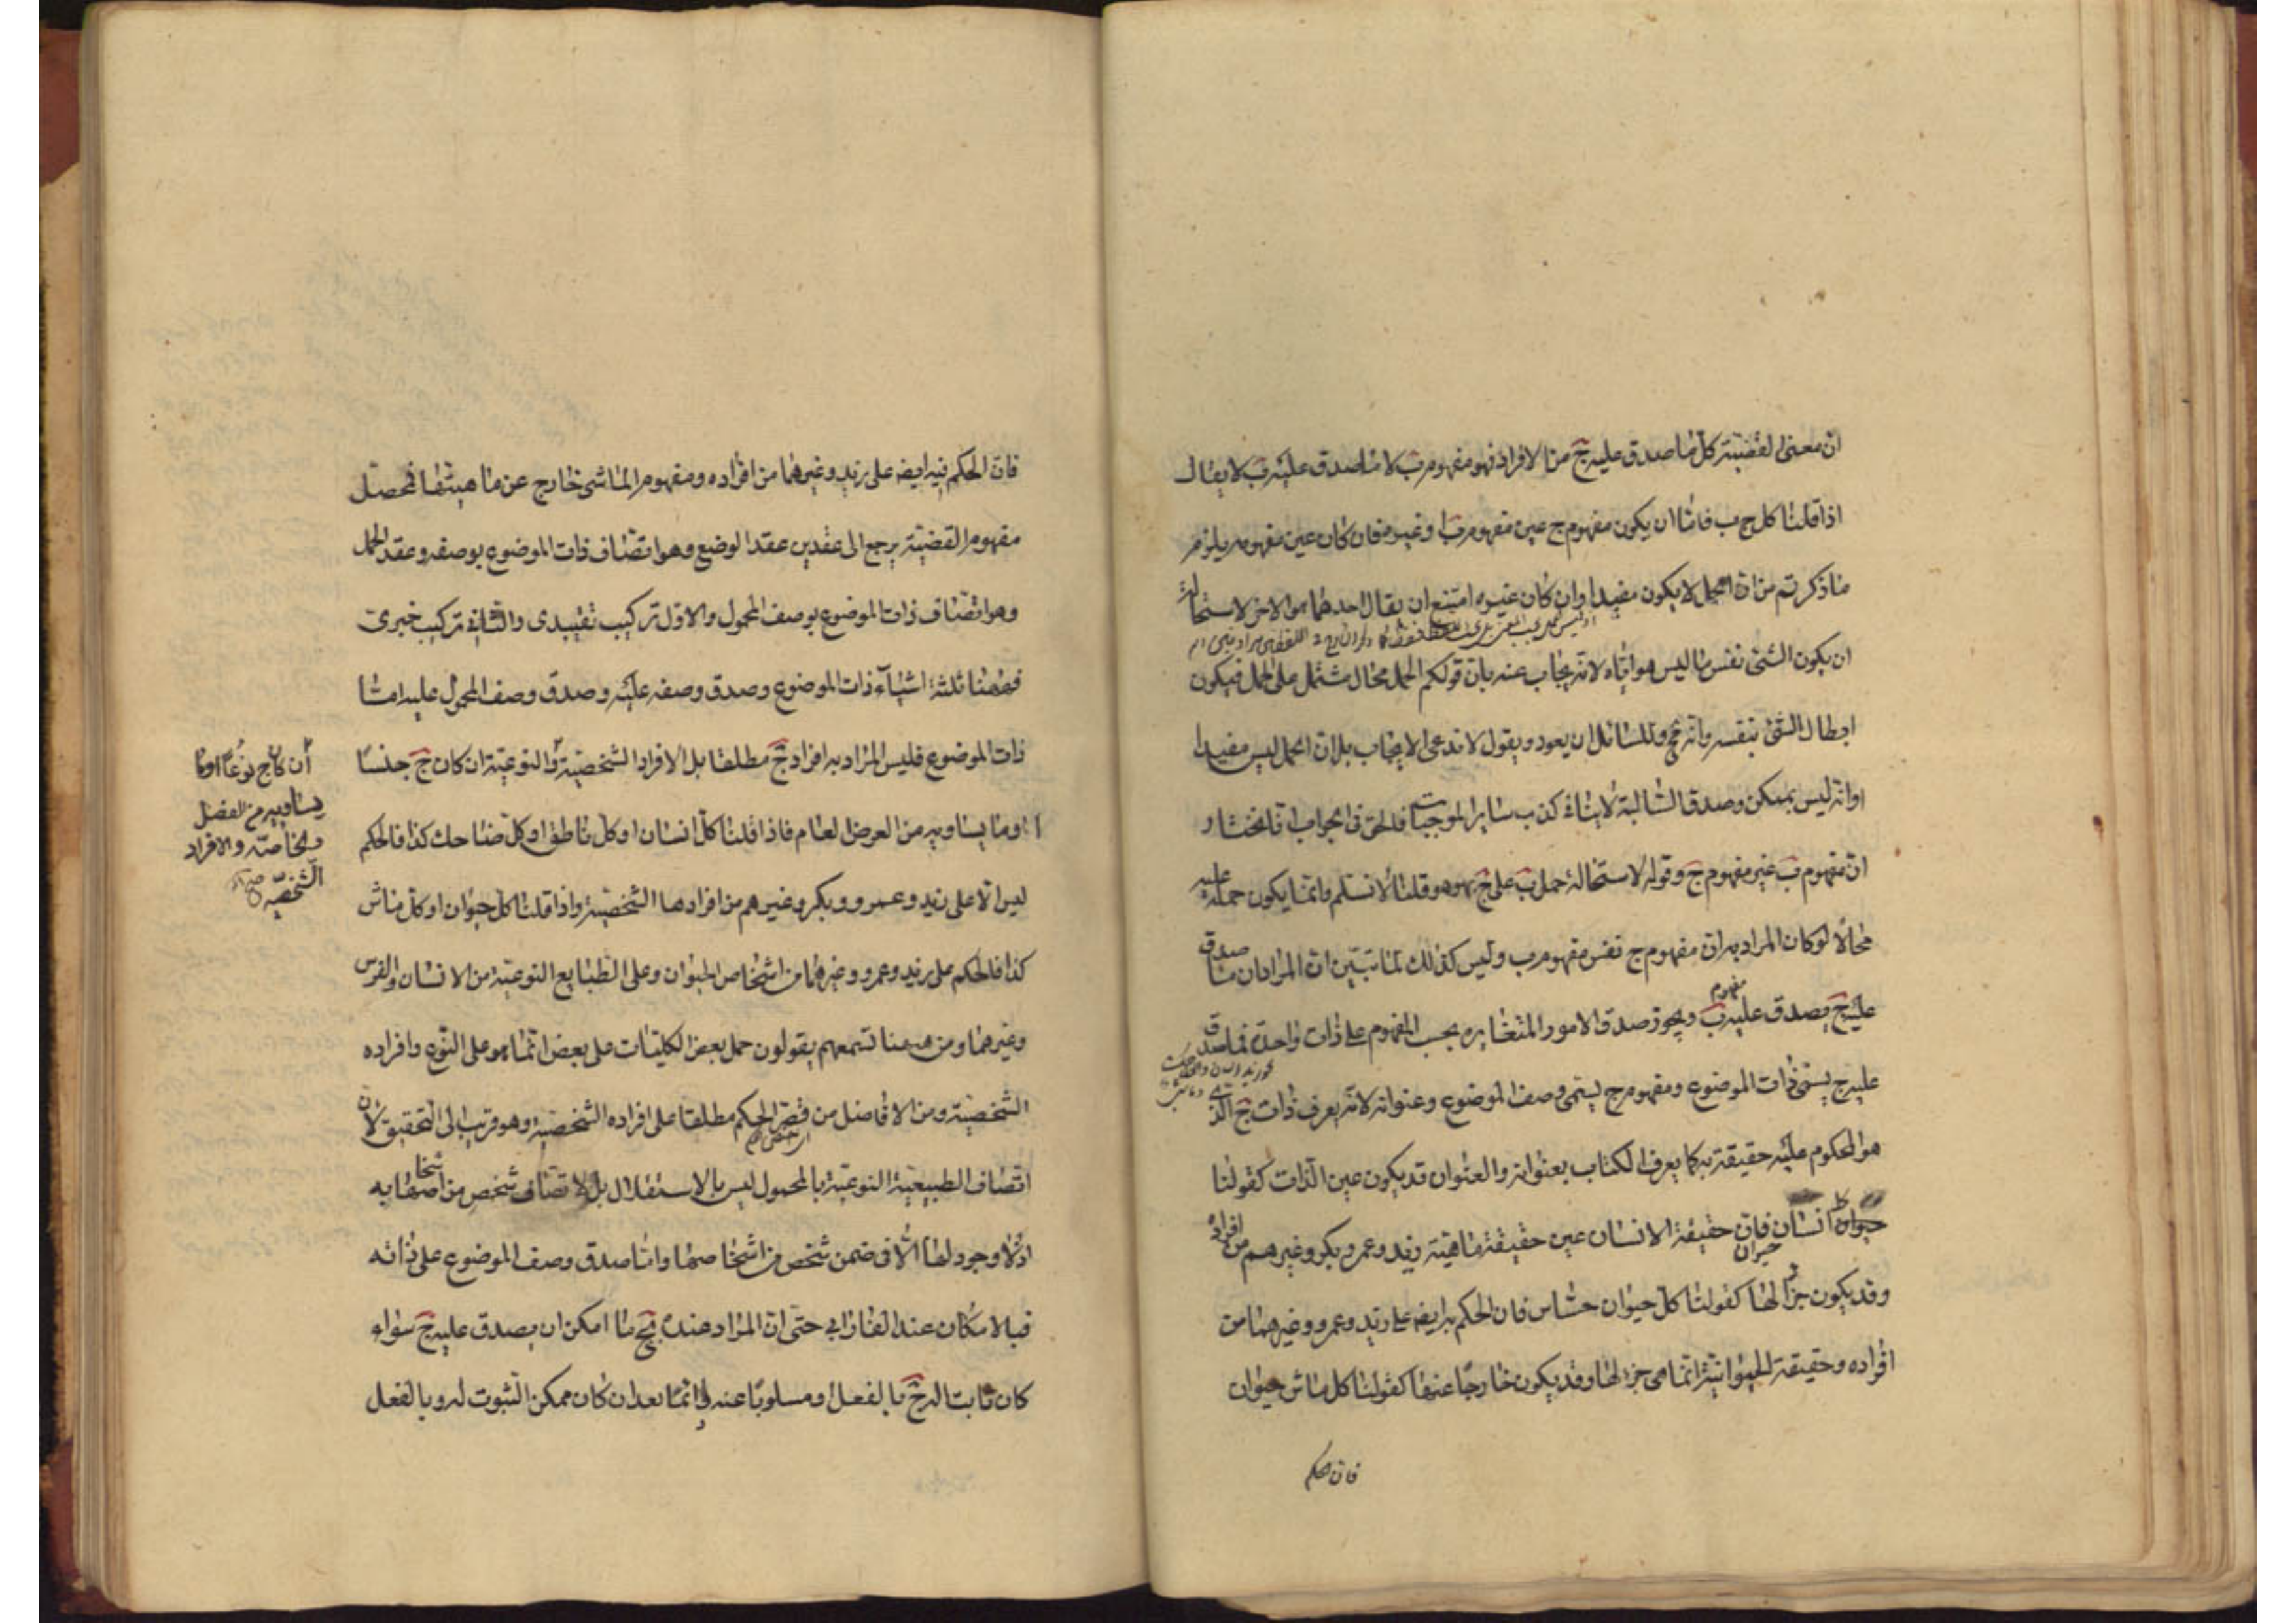 ان معنى القضية كل ما صدق عليه ج من الافراد فهو مفهوم ب لا ما صدق عليه ب لا يقال
اذا قلنا كل ج ب فاما ان يكون مفهوم ج عين مفهوم ب او غيره فان كان عين مفهومه يلزم
ما ذكرتم من ان الحمل لا يكون مفيدا وان كان غيره امتنع ان يقال احدهما هو الاخر لاستحالة
ان يكون الشئ نفس ما ليس هو اياه لانه يجاب عنه بان قولكم الحمل محال مشتمل على الحمل فيكون
ابطال الشئ بنفسه وانه مح وللسائل ان يعود ويقول لا ندعى الايجاب بل ان الحمل ليس مفيدا
او انه ليس بممكن وصدق السالبة لا ينافى كذب ساير الموجبات فالحق فى الجواب انا نختار
ان مفهوم ب غير مفهوم ج وقوله لاستحالة حمل ب على ج بهو هو قلنا لا نسلم وانما يكون حمله عليه
محالا لو كان المراد به ان مفهوم ج نفس مفهوم ب وليس كذلك لما تبين ان المراد ان ما صدق
عليه ج يصدق عليه مفهوم ب ويجوز صدق الامور المتغايره بحسب المفهوم على ذات واحدة فما صدق
عليه ج يسمى ذات الموضوع ومفهوم ج يسمى وصف الموضوع وعنوانه لانه يعرف ذات ج الذى
هو المحكوم عليه حقيقة به كما يعرف الكتاب بعنوانه والعنوان قد يكون عين الذات كقولنا
كل انسان حيوان فان حقيقة الانسان عين حقيقة ماهية زيد وعمرو بكر وغيرهم من افراده
وقد يكون جزأ لها كقولنا كل حيوان حساس فان الحكم به ايضه على زيد وعمرو وغيرهما من
افراده وحقيقة الحيوانية انما هى جزء لها وقد يكون خارجا عنها كقولنا كل ماش حيوان
فان الحكم
فان الحكم فيه ايضه على زيد وغيرهما من افراده ومفهوم الماشى خارج عن ماهيتها فمحصل
مفهوم القضية يرجع الى عقدين عقد الوضع وهو اتصاف ذات الموضوع بوصفه وعقد الحمل
وهو اتصاف ذات الموضوع بوصف المحمول والاول تركيب تقييدى والثانى تركيب خبرى
فههنا ثلثة اشياء ذات الموضوع وصدق وصفه عليه وصدق وصف المحمول عليه اما
ذات الموضوع فليس المراد به افراد ج مطلقا بل الافراد الشخصية والنوعية ان كان ج جنسا
ان كان ج نوعا او ما
يساويه من الفصل
والخاصة والافراد
الشخصية
او ما يساويه من العرض العام فاذا قلنا كل انسان او كل ناطق او كل ضاحك كذا فالحكم
ليس الا على زيد وعمرو وبكر وغيرهم من افرادها الشخصية واذا قلنا كل حيوان او كل ماش
كذا فالحكم على زيد وعمرو وغيرهما من اشخاص الحيوان وعلى الطبايع النوعية من الانسان والفرس
وغيرهما ومن ههنا تسمعهم يقولون حمل بعض الكليات على بعض انما هو على النوع وافراده
الشخصية ومن الافاضل من قصر الحكم مطلقا على افراده الشخصية وهو قريب الى التحقيق لان
اتصاف الطبيعية النوعية بالمحمول ليس بالاستقلال بل لاتصاف شخص من اشخاصها به
اذ لا وجود لها الا فى ضمن شخص من اشخاصها واما صدق وصف الموضوع على ذاته
فبالامكان عند الفارابي حتى ان المراد عنده بج ما امكن ان يصدق عليه ج سواء
كان ثابتا له ج بالفعل او مسلوبا عنه دائما بعد ان كان ممكن الثبوت له وبالفعل